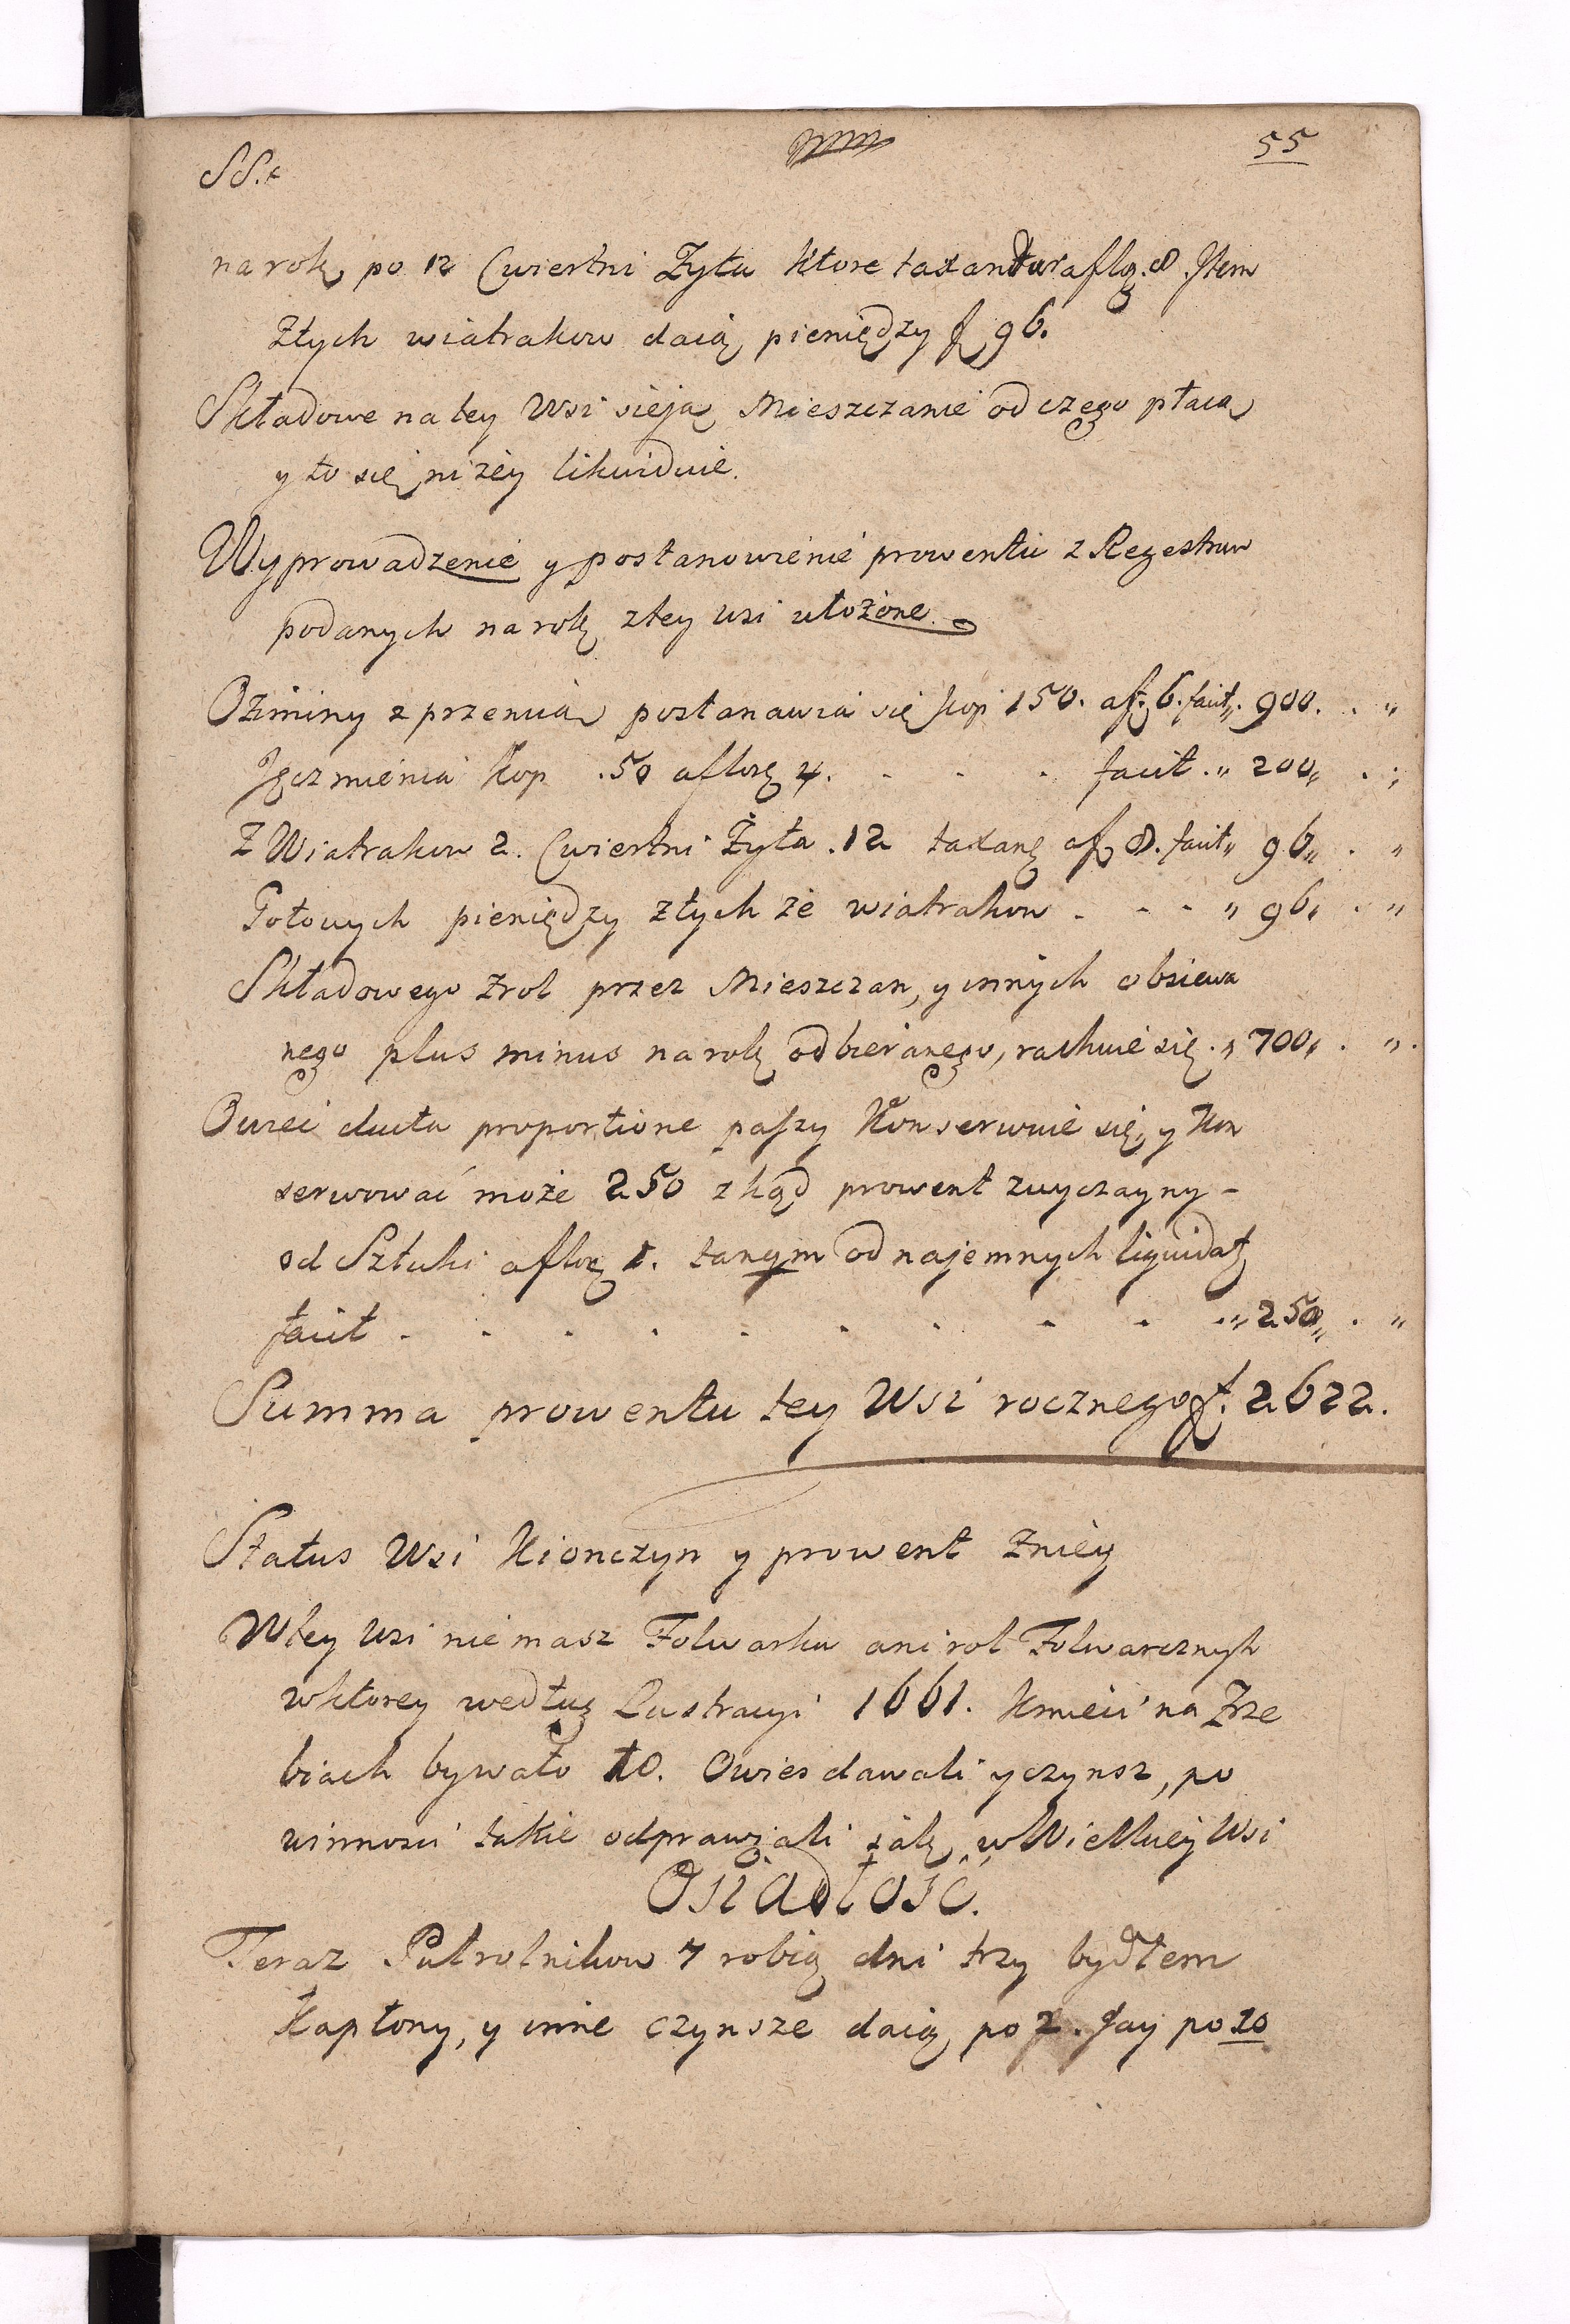 55
na rok po 12 Cwiertni Zyta Ktore taxantur a flor. 8. Item
Ztych wiatrakow daią pieniędzy f 96.
Składowe na tey Wsi sieją Mieszczanie od czego płacą
y to się niżey likwiduie.
Wyprowadzenie y postanowienie prowentu z Regestrow
podanych na rok z tey wsi ułożone.
Oziminy z przenicą postanawia się kop 150. a f. 6. facit „. 900. . „
Jęczmienia Kop . 50 a flore 4. . . . facit . „ 200 „ . „
Z Wiatrakow 2. Cwiertni Żyta . 12 taxane a f 8. facit „ 96 „ . „
Gotowych pieniędzy z tych że wiatrakow . - - „ 96 „ . „
Składowego z rol przez Mieszczan, y innych obsiewa
nego plus minus na rok odbieranego, rachuie się . „ 700 „ . „ .
Owiec ducta proportione paszy Konserwuie się, y Kon
serwować może 250 zkąd prowent zwyczayny -
od Sztuki a flore 1. tanqm od najemnych liquidat
facit . . . . . . . . . . „ 250 „ . „
Summa prowentu tey Wsi rocznego f. 2622.
Status Wsi Kionczyn y prowent z niey
W tey wsi nie masz Folwarku ani rol Folwarcznych
w ktorey według Lustracyi 1661. Kmieci na Zrze
biach bywało 10. Owies dawali y czynsz, po
winnosci takie odprawiali iak w Wielkiey Wsi
Osiadłość.
Teraz Pułrolnikow 7 robią dni trzy bydłem
Kapłony, y inne czynsze daią po 2. Jay po 10